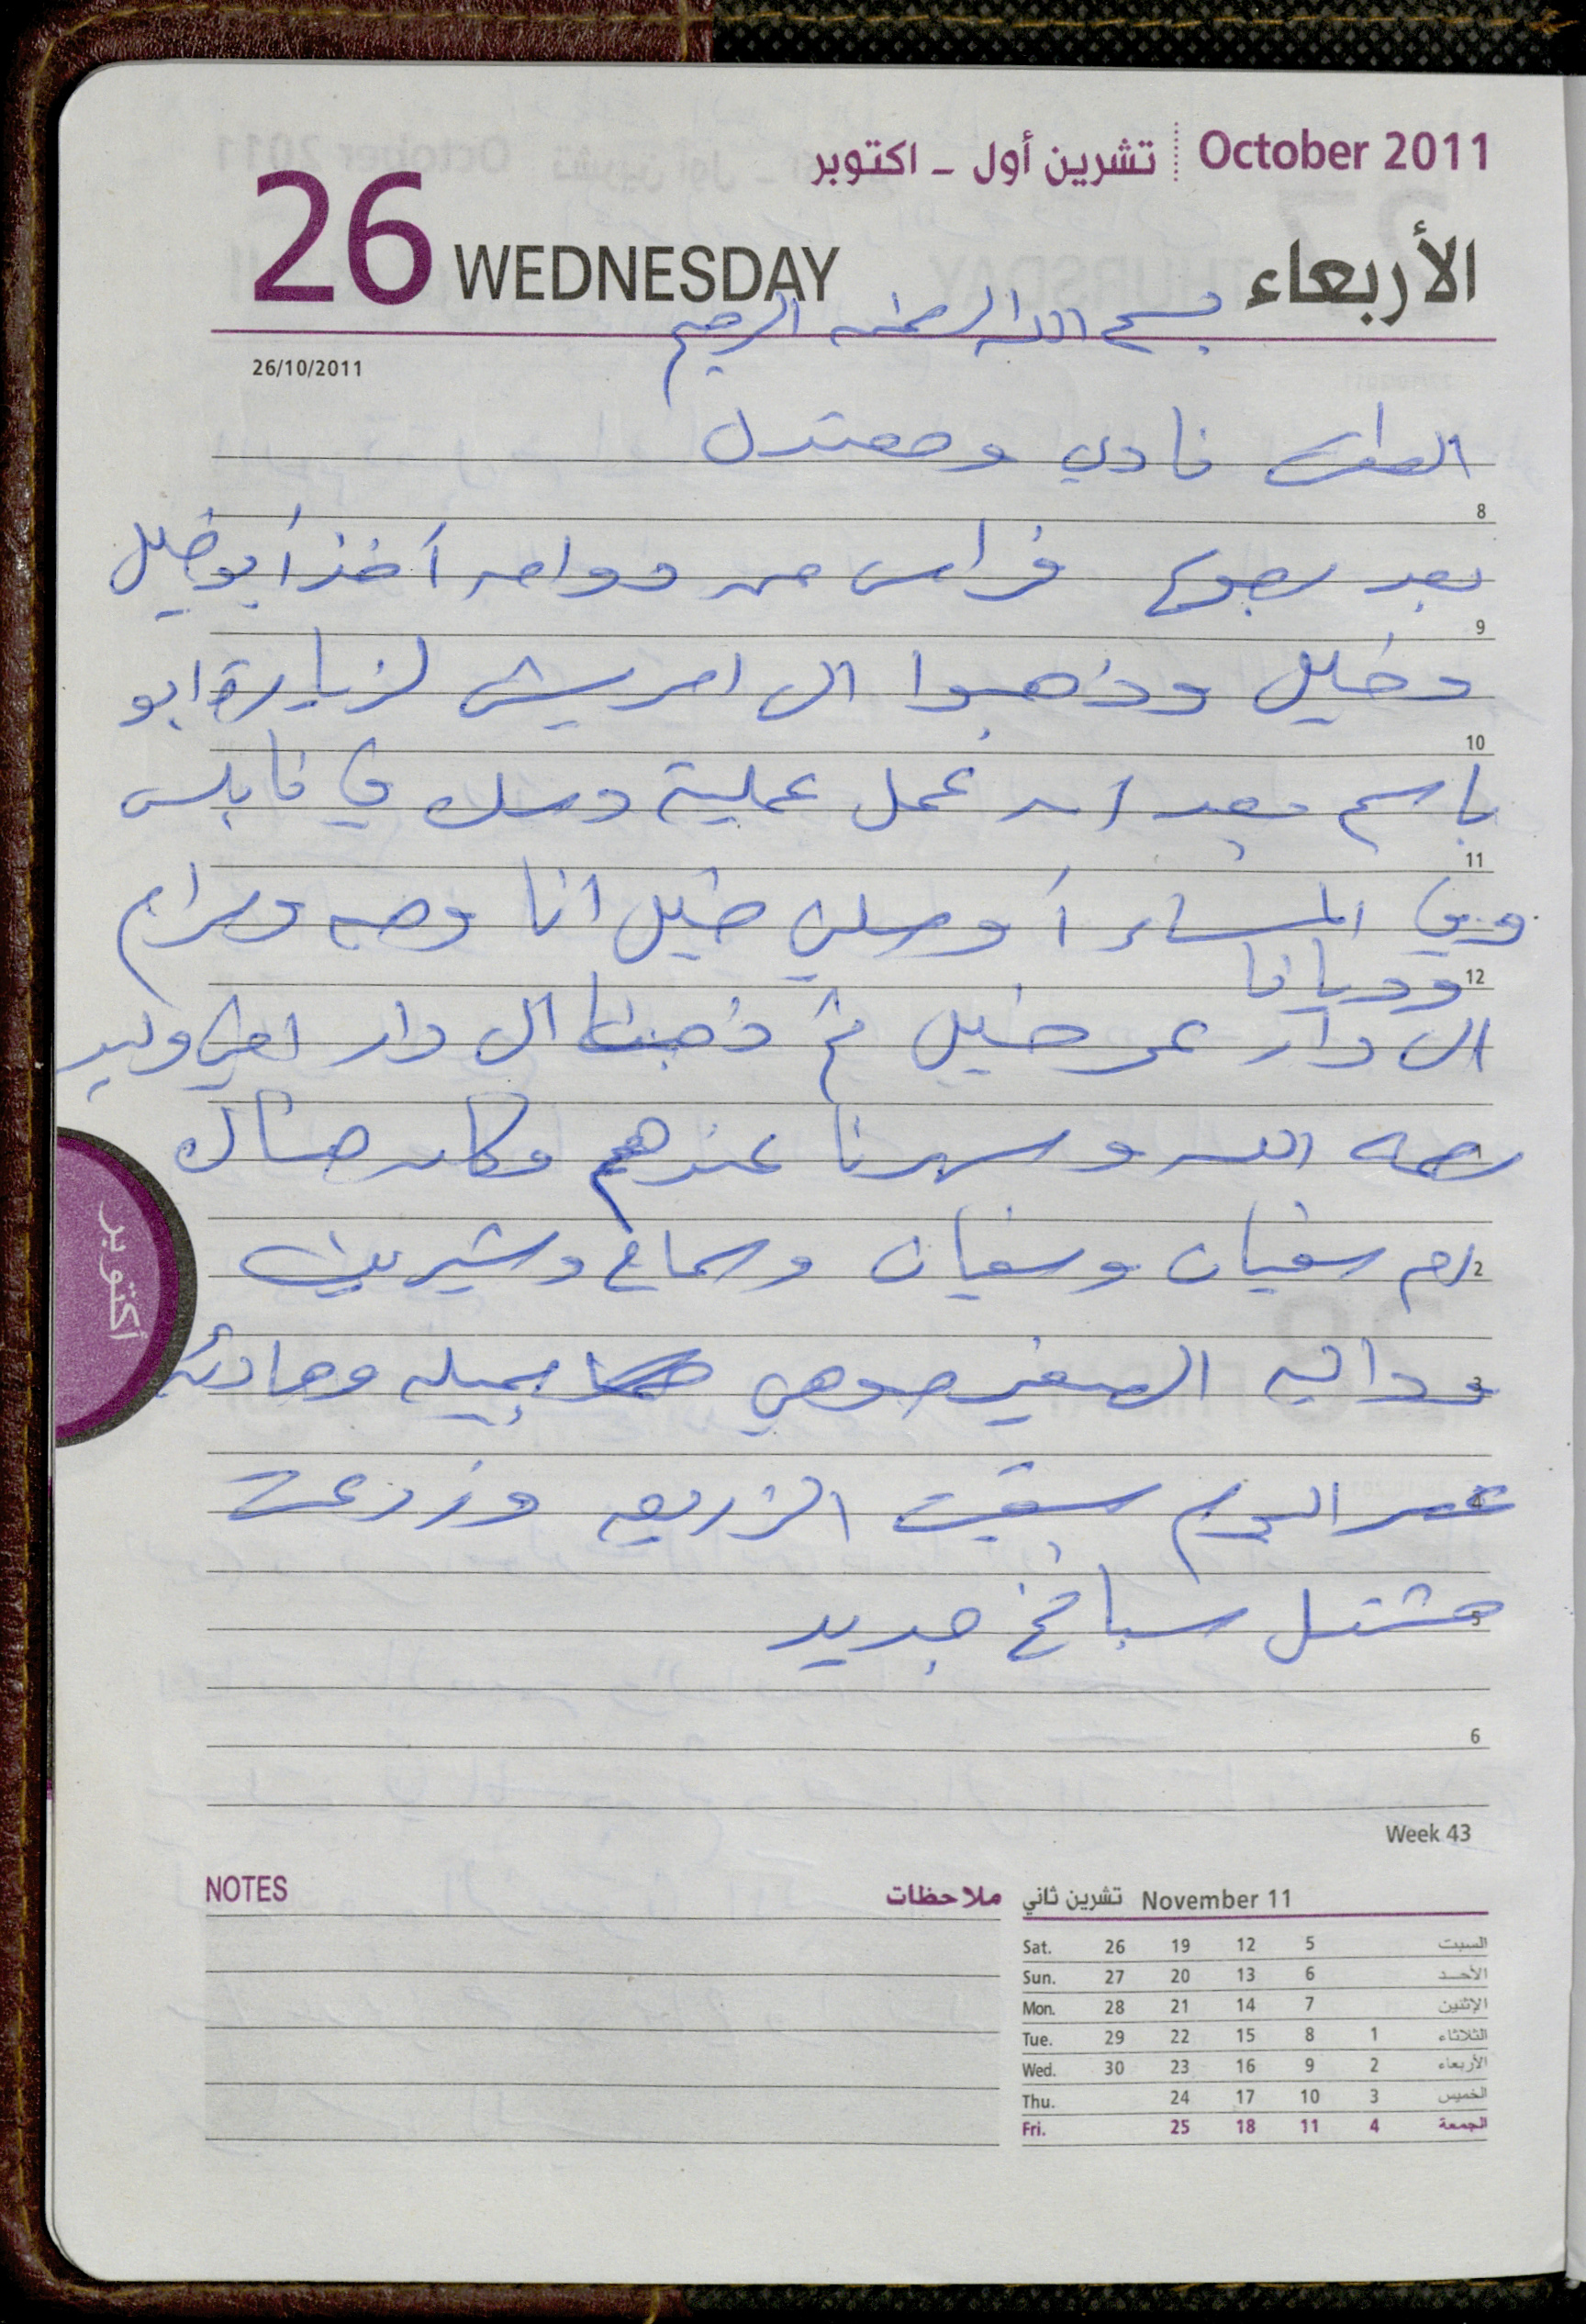 October 2011 تشرين أول - اكتوبر
26 WEDNESDAY الأربعاء
بسم الله الرحمن الرحيم
26/10/2011
الطقس نادي ومعتدل
8
بعد رجوع فراس من دوامه أخذ أبو خليل
9
وخليل وذهبوا الى امريش لزيارة ابو
10
باسم بعد ان عمل عملية وسك في نابلس
11
وفي المساء أوصلني خليل انا ومرام
12 وديانا
الى دار عمر خليل ثم ذهبنا الى دار وليد
رحمه الله وسهرنا عندهم وكان هناك
2 ام سفيان وسفيان وسماح وشيرين
3 وداليه الصغيره وهي جميله وهادئه
4 عصر اليوم سقيت الزريعه وزرعت
5 مشتل سبانخ جديد
أكتوبر
6
Week 43
NOTES ملاحظات
تشرين ثاني November 11
Sat. 26 19 12 5 السبت
Sun. 27 20 13 6 الأحد
Mon. 28 21 14 7 الإثنين
Tue. 29 22 15 8 1 الثلاثاء
Wed. 30 23 16 9 2 الأربعاء
Thu. 24 17 10 3 الخميس
Fri. 25 18 11 4 الجمعة